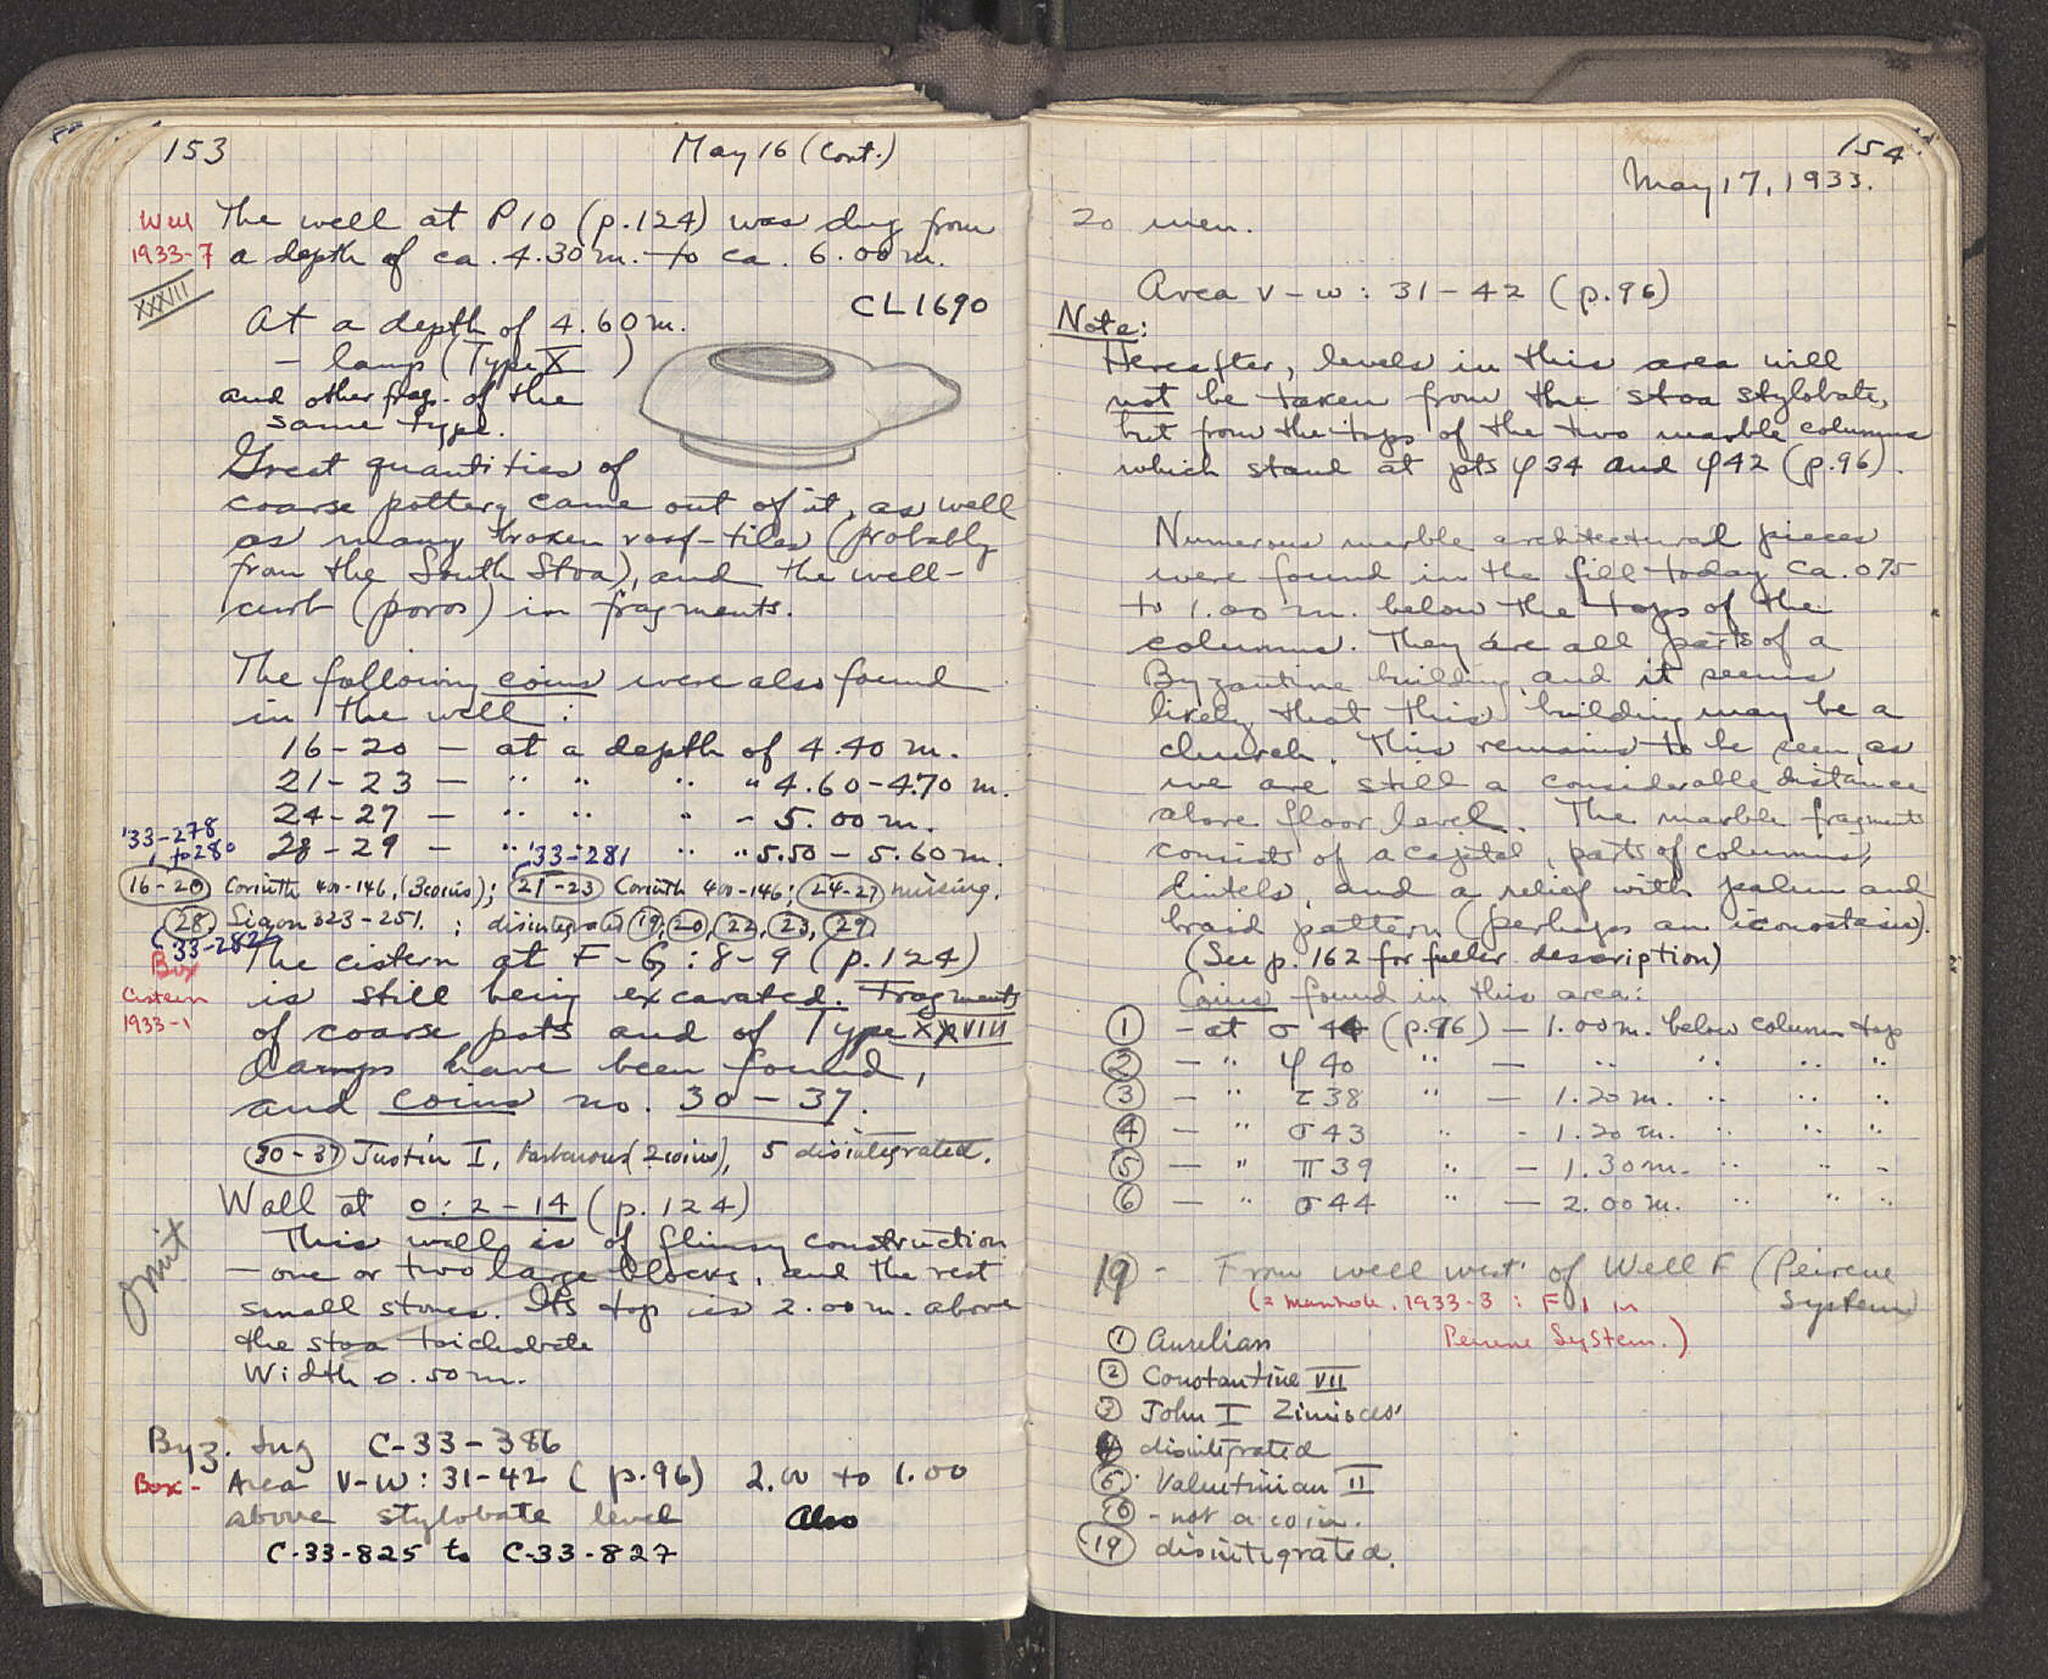 153
May 16 (Cont.)
Well
1933-7
XXXIII
The well at P10 (p.124) was dug from
a depth of ca. 4.30 m. to ca. 6.00 m.
CL1690
At a depth of 4.60 m.
- lamp (Type X )
and other frags. of the
same type.
Great quantities of
coarse pottery came out of it, as well
as many broken roof-tiles (probably
from the South Stoa), and the well-
curb (poros) in fragments.
The following coins were also found
in the well:
16-20 - at a depth of 4.40 m.
21-23 - " " " " 4.60-4.70 m.
24-27 - " " " - 5.00 m.
28-29 - " " " " 5.50 - 5.60 m.
'33-278
to 280
'33-281
16-20 Corinth 400-146, (3 coins); 21-23 Corinth 400-146; 24-27 missing.
28 Sicyon 323-251. ; disintegrated 19, 20, 22, 23, 29
33-282
Box
Cistern
1933-1
The cistern at F-G: 8-9 (p.124)
is still being excavated. Fragments
of coarse pots and of Type XXVIII
lamps have been found,
and coins no. 30-37.
30-37 Justin I, barbarous (2 coins), 5 disintegrated.
Omit
Wall at O: 2-14 (p.124)
This wall is of flimsy construction
- one or two large blocks, and the rest
small stones. Its top is 2.00 m. above
the stoa toichobate
Width 0.50 m.
Byz. Jug C-33-386
Box - Area V-W: 31-42 (p.96) 2.00 to 1.00
above stylobate level Also
C-33-825 to C-33-827
154
May 17, 1933.
20 men.
Area V-W: 31-42 (p.96)
Note:
Hereafter, levels in this area will
not be taken from the stoa stylobate,
but from the tops of the two marble columns
which stand at pts φ34 and φ42 (p.96).
Numerous marble architectural pieces
were found in the fill today ca. 0.75
to 1.00 m. below the tops of the
columns. They are all parts of a
Byzantine building, and it seems
likely that this building may be a
church. This remains to be seen, as
we are still a considerable distance
above floor level. The marble fragments
consists of a capital, parts of columns,
lintels, and a relief with palm and
braid pattern (perhaps an iconostasis).
(See p. 162 for fuller description)
Coins found in this area:
1 - at σ 44 (p.96) - 1.00 m. below column top
2 - " φ 40 " - " " " "
3 - " τ38 " - 1.20 m. " " "
4 - " σ43 " - 1.20 m. " " "
5 - " π39 " - 1.30 m. " " "
6 - " σ44 " - 2.00 m. " " "
19 - From well west of Well F (Peirene
System)
(= Manhole. 1933-3 : F 1 in
Peirene System.)
1 Aurelian
2 Constantine VII
3 John I Zimisces
4 disintegrated
5 Valentinian II
6 - not a coin.
19 disintegrated.